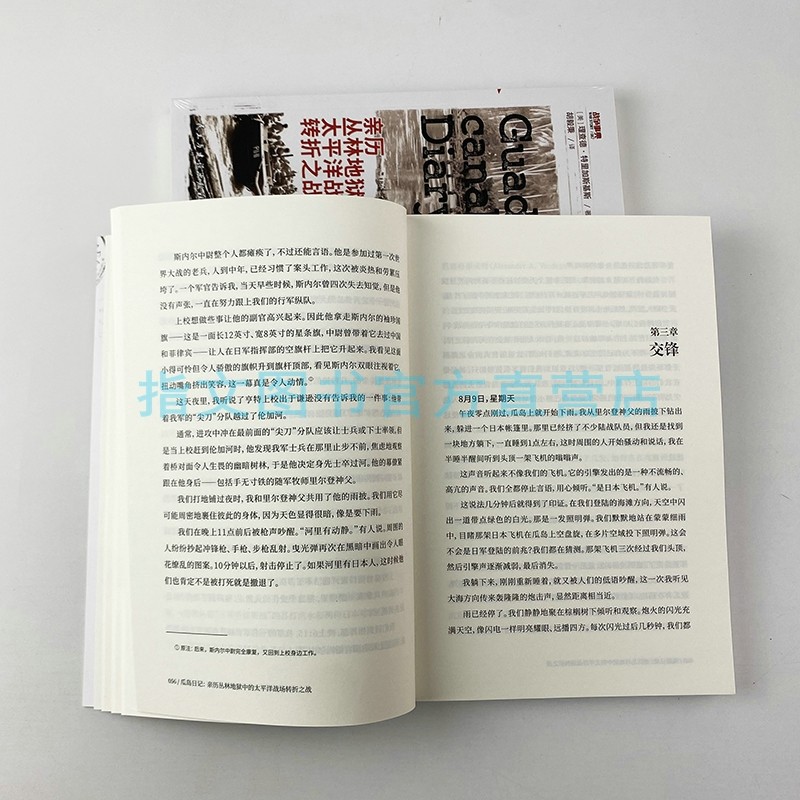 战争事典
[美] 理查德·特里加斯基斯 / 著
胡毅秉 / 译
Guad
canal
Diary
亲历
丛林地狱
太平洋战
转折之战
斯内尔中尉整个人都瘫痪了，不过还能言语。他是参加过第一次世
界大战的老兵，人到中年，已经习惯了案头工作，这次被炎热和劳累压
垮了。一个军官告诉我，当天早些时候，斯内尔曾四次失去知觉。但是他
没有声张，一直在努力跟上我们的行军纵队。
上校想做些事让他的副官高兴起来。因此他拿走斯内尔的袖珍国
旗——这是一面长12英寸、宽8英寸的星条旗，中尉曾带着它去过中国
和菲律宾——让人在日军指挥部的空旗杆上把它升起来。我看见这面
小得可怜但令人骄傲的旗帜升到旗杆顶部，看见斯内尔双眼注视着它，
扭动嘴角挤出笑容，这一幕真是令人动情。①
这天夜里，我听说了亨特上校出于谦逊没有告诉我的一件事：他带
着我军的“尖刀”分队越过了伦加河。
通常，进攻中冲在最前面的“尖刀”分队应该让士兵或下士率领。但
是当上校赶到伦加河时，他发现我军士兵在那里止步不前，焦虑地观察
着桥对面令人生畏的幽暗树林，于是他决定身先士卒过河。他的幕僚紧
跟在他身后——包括手无寸铁的随军牧师里尔登神父。
我们打地铺过夜时，我和里尔登神父共用了他的雨披。我们用它尽
可能周密地裹住彼此的身体，因为天色显得很暗，像是要下雨。
我们在晚上11点前后被枪声吵醒。“河里有动静。”有人说。周围的
人纷纷抄起冲锋枪、手枪、步枪乱射。曳光弹再次在黑暗中画出令人眼
花缭乱的图案。10分钟以后，射击停止了。如果河里有日本人，这时候他
们也肯定不是被打死就是撤退了。
① 原注：后来，斯内尔中尉完全康复，又回到上校身边工作。
056 / 瓜岛日记：亲历丛林地狱中的太平洋战场转折之战
第三章
交锋
8月9日，星期天
午夜零点刚过，瓜岛上就开始下雨。我从里尔登神父的雨披下钻出
来，躲进一个日本帐篷里。那里已经挤了不少陆战队员，但我还是找到
一块地方躺下，一直睡到1点左右，这时周围的人开始骚动和说话，我在
半睡半醒间听到头顶一架飞机的嗡嗡声。
这声音听起来不像我们的飞机。它的引擎发出的是一种不流畅的、
高亢的声音。我们全都停止言语，用心倾听。“是日本飞机。”有人说。
这说法几分钟后就得到了印证。在我们登陆的海滩方向，天空中闪
出一道带点绿色的白光。那是一发照明弹。我们默默地站在蒙蒙细雨
中，目睹那架日本飞机在瓜岛上空盘旋，在多片空域投下照明弹。这会
不会是日军登陆的前兆？我们都在猜测。那架飞机三次经过我们头顶，
然后引擎声逐渐减弱，最后消失。
我躺下来，刚刚重新睡着，就又被人们的低语吵醒，这一次我听见
大海方向传来轰隆隆的炮击声，显然距离相当近。
雨已经停了。我们静静地聚在棕榈树下倾听和观察。炮火的闪光充
满天空，像闪电一样明亮耀眼、远播四方。每次闪光过后几秒钟，我们都
指文图书官方直营店